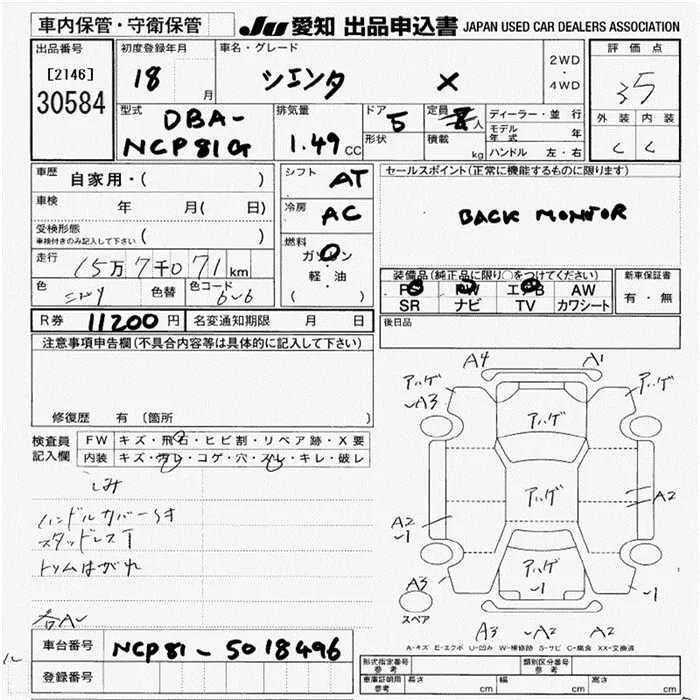 車内保管・守衛保管
JU 愛知 出品申込書 JAPAN USED CAR DEALERS ASSOCIATION
出品番号
[2146]
30584
初度登録年月
18 月
車名・グレード
シエンタ X
2WD
・
4WD
評価点
3.5
外装 内装
C C
型式
DBA-
NCP81G
排気量
1.49 CC
ドア 5
形状
定員 人
積載 kg
ディーラー・並行
モデル年式 年
ハンドル 左・右
車歴
自家用・( )
車検 年 月( 日)
受検形態
車検付きのみ記入して下さい ( )
走行
15万7千071km
色 色替 色コード
シフト AT
冷房 AC
燃料
ガソリン
軽・油
( )
セールスポイント(正常に機能するものに限ります)
BACK MONITOR
装備品(純正品に限り○をつけてください)
PS PW エアB AW
SR ナビ TV カワシート
新車保証書
有・無
R券 11200円 名変通知期限 月 日
後日品
注意事項申告欄(不具合内容等は具体的に記入して下さい)
修復歴 有 (箇所 )
検査員
記入欄
FW キズ・飛石・ヒビ割・リペア跡・X要
内装 キズ・汚レ・コゲ・穴・スレ・キレ・破レ
シミ
ハンドルカバーつき
スタッドレスT
トリムはがれ
各A〜
A4 A1
アハゲ アハゲ
〜A3
アハゲ
アハゲ
A2 A2
〜1
アハゲ
〜1
A3 〜1
スペア
A3 〜A2 A2
A-キズ E-エクボ U-凹み W-補修跡 S-サビ C-腐食 XX-交換済
車台番号 NCP81-5018496
登録番号
形式指定番号
参考
類別区分番号
参考
車庫証明用
参考
長さ cm 幅 cm 高さ cm